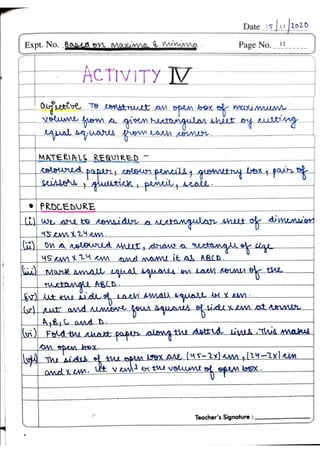 Date 15 / 11 / 2020
Expt. No. Based on maxima & minima. Page No. 11
ACTIVITY IV
Objective To construct an open box of maximum
volume from a given rectangular sheet by cutting
equal squares from each corner.
MATERIALS REQUIRED -
coloured paper, colour pencils, geometry box, pair of
scissors, gluestick, pencil, scale.
• PROCEDURE
(i) we are to consider a rectangular sheet of dimension
45 cm X 24 cm.
(ii) On a coloured sheet, draw a rectangle of size
45 cm X 24 cm and name it as ABCD.
(iii) Mark small equal squares on each corner of the
rectangle ABCD.
(iv) Let the side of each small square be x cm.
(v) cut and remove four squares of side x cm at corner
A, B, C and D.
(vi) Fold the chart paper along the dotted lines. This makes
an open box.
(vii) The sides of the open box are (45-2x) cm, (24-2x) cm
and x cm. Let V cm³ be the volume of open box.
Teacher's Signature :